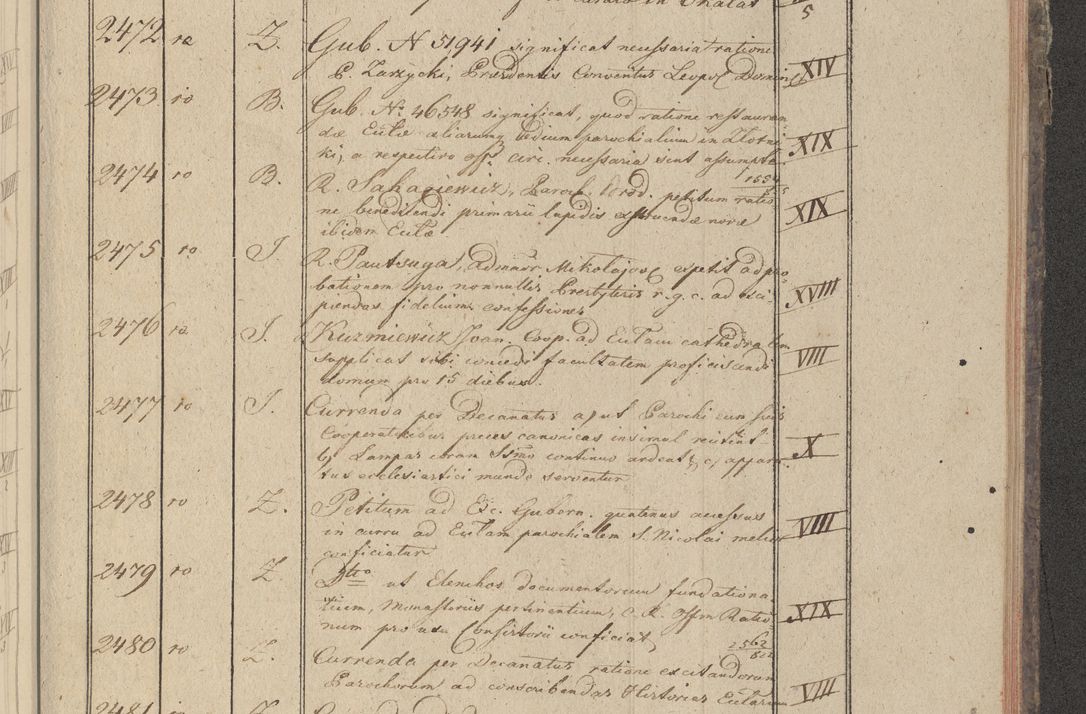 2472 ro Z. Gub. N 51941 significat necessaria ratione
P. Zarzycki, Praesidentis Conventus Leopol Domin XIV
2473 ro B. Gub. No 46548 significat, quod ratione restauran
dae Ecclae aliarumq aedium parochialium in
ki, a respectivo off. circ. necessaria sint assumpta. XIX
2474 ro B. R. Paroch. petitum ratio
ne benedicendi primarii lapidis exstruendae novae XIX
ibidem Ecclae
2475 ro J. R. Pautsuga, admnor Mikolajow expetit adpro
bationem pro nonnullis Presbyteris r. g. c. ad exci
piendas fidelium confessiones XVIII
2476 ro J. Kuzmiewicz Joan. Coop. ad Ecclam cathedralem
supplicat sibi concedi facultatem proficiscendi VIII
domum pro 15 diebus.
2477 ro J. Currenda per Decanatus a, ut Parochi cum suis
Cooperatoribus preces canonicas insimul recitent
b, Lampas coram Ssmo continuo ardeat, & c, appara X
tus ecclesiastici munde serventur
2478 ro Z. Petitum ad Exc. Gubern. quatenus accessus
in curru ad Ecclam parochialem S. Nicolai melior VIII
conficiatur
2479 ro Z. Dtto ut Elenchos documentorum fundationa
lium, Monasteriis pertinentium, C. R. Offm Ratio XIX
num pro usu Consistorii conficiat
2480 ro Z. Currenda per Decanatus ratione excitandorum
Parochorum ad conscribendas Historias Ecclarum VIII
2481